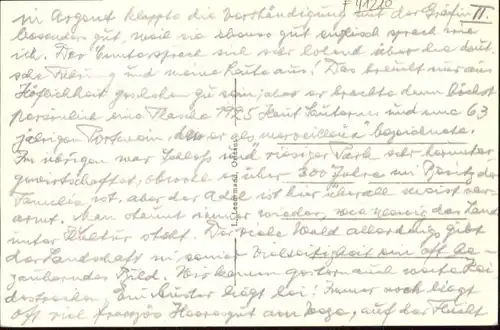 F 41220
II.
in Argent klappte die Verständigung mit der Gräfin
besonders gut, weil sie ebenso gut englisch sprach wie
ich. Der Unterspruch sich sehr lobend über die deut-
sche Führung und meine Leute aus! Das braucht nur aus
Höflichkeit geschehen zu sein, aber er brachte dann höchst
persönlich eine Flasche 1925 Haut Sauterne und eine 63
jährigen Portwein, den er als "merveilleux" bezeichnete.
Im übrigen war Schloss und riesiger Park sehr herunter-
gewirtschaftet, obwohl es über 300 Jahre im Besitz der
Familie ist. aber der Adel ist hier überall meist ver-
armt. Man staunt immer wieder, wie wenig das Land
unter Kultur steht. Der viele Wald allerdings gibt
der Landschaft in seiner Vielseitigkeit ein oft be-
zauberndes Bild. Wir kamen gestern auch weite
Ein Muster liegt bei! Immer noch liegt
oft viel französ. Heeresgut am Wege, auf der Flucht
L. Lecommandeur